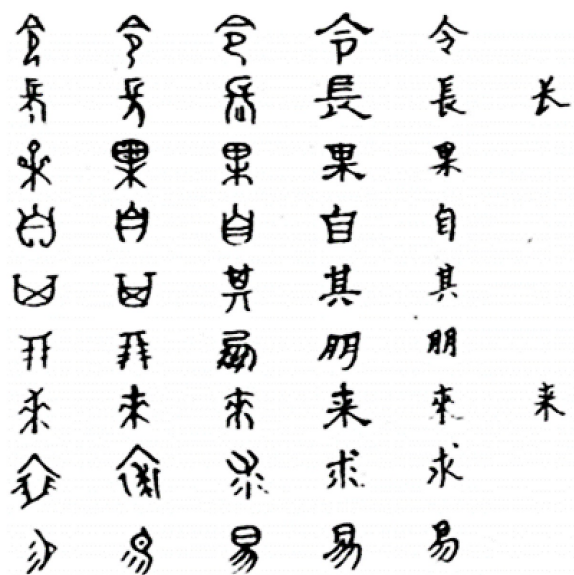 令 令 令 令 令
長 長 長 長 長 长
果 果 果 果 果
自 自 自 自 自
其 其 其 其 其
朋 朋 朋 朋 朋
來 來 來 来 來 来
求 求 求 求 求
易 易 易 易 易